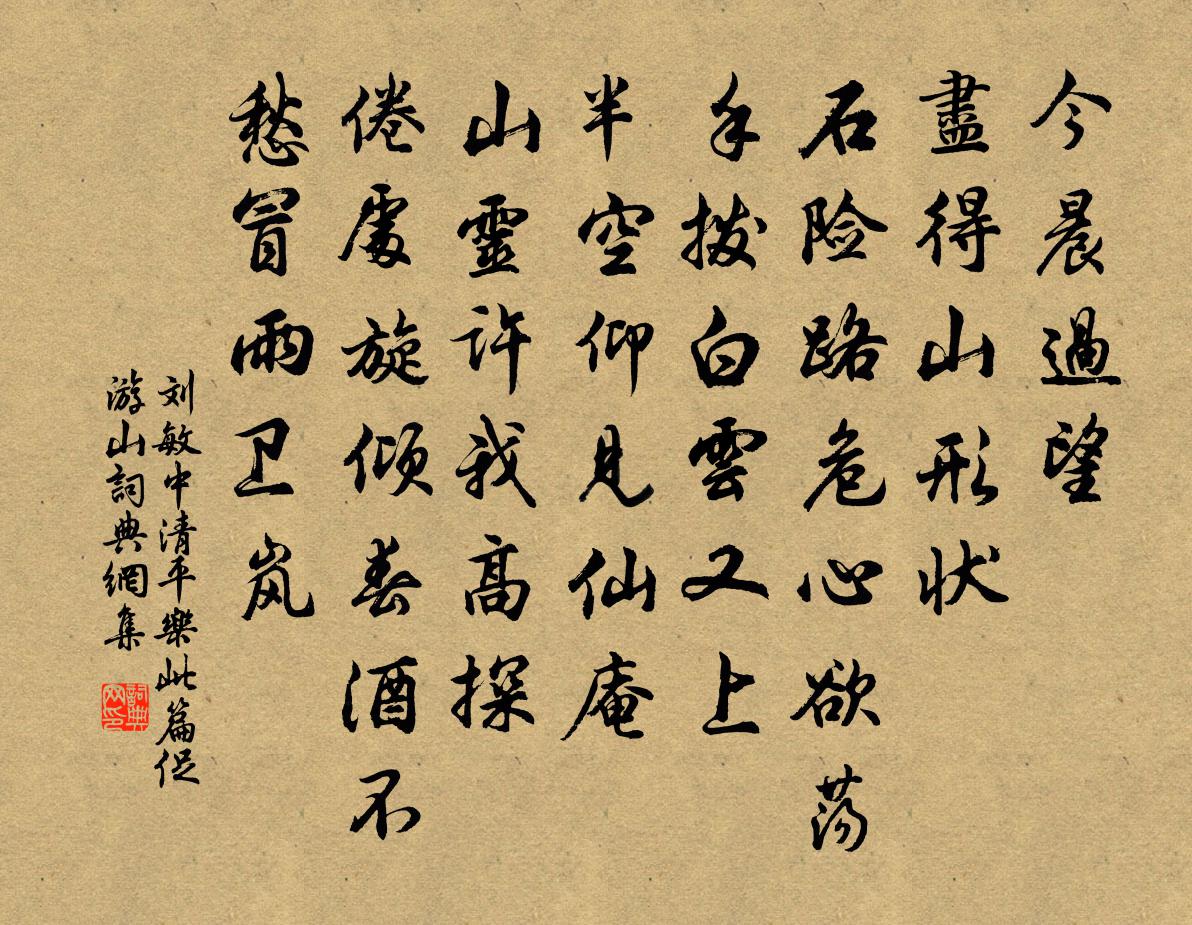 今晨過望
盡得山形状
石险路危心欲荡
手拨白雲又上
半空仰见仙庵
山靈许我高探
倦處旋倾春酒不
愁冒雨卫岚
刘敏中清平樂此篇促
游山詞典網集
詞典网印